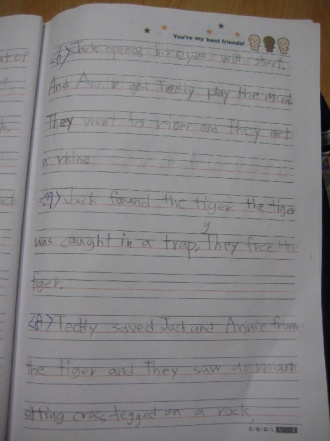 You're my best friends!
26> Jack opened his eyes with start.
And Annie and Teddy play the mud.
They went to river and They met
a rhino.
27> Jack found the tiger. the tiger
was caught in a trap, They free the
tiger.
28> Teddy saved Jack and Annie from
the tiger and They saw
sitting cross-legged on a rock.